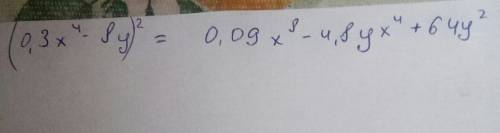 (0,3x⁴ - 8y)² = 0,09x⁸ - 4,8yx⁴ + 64y²